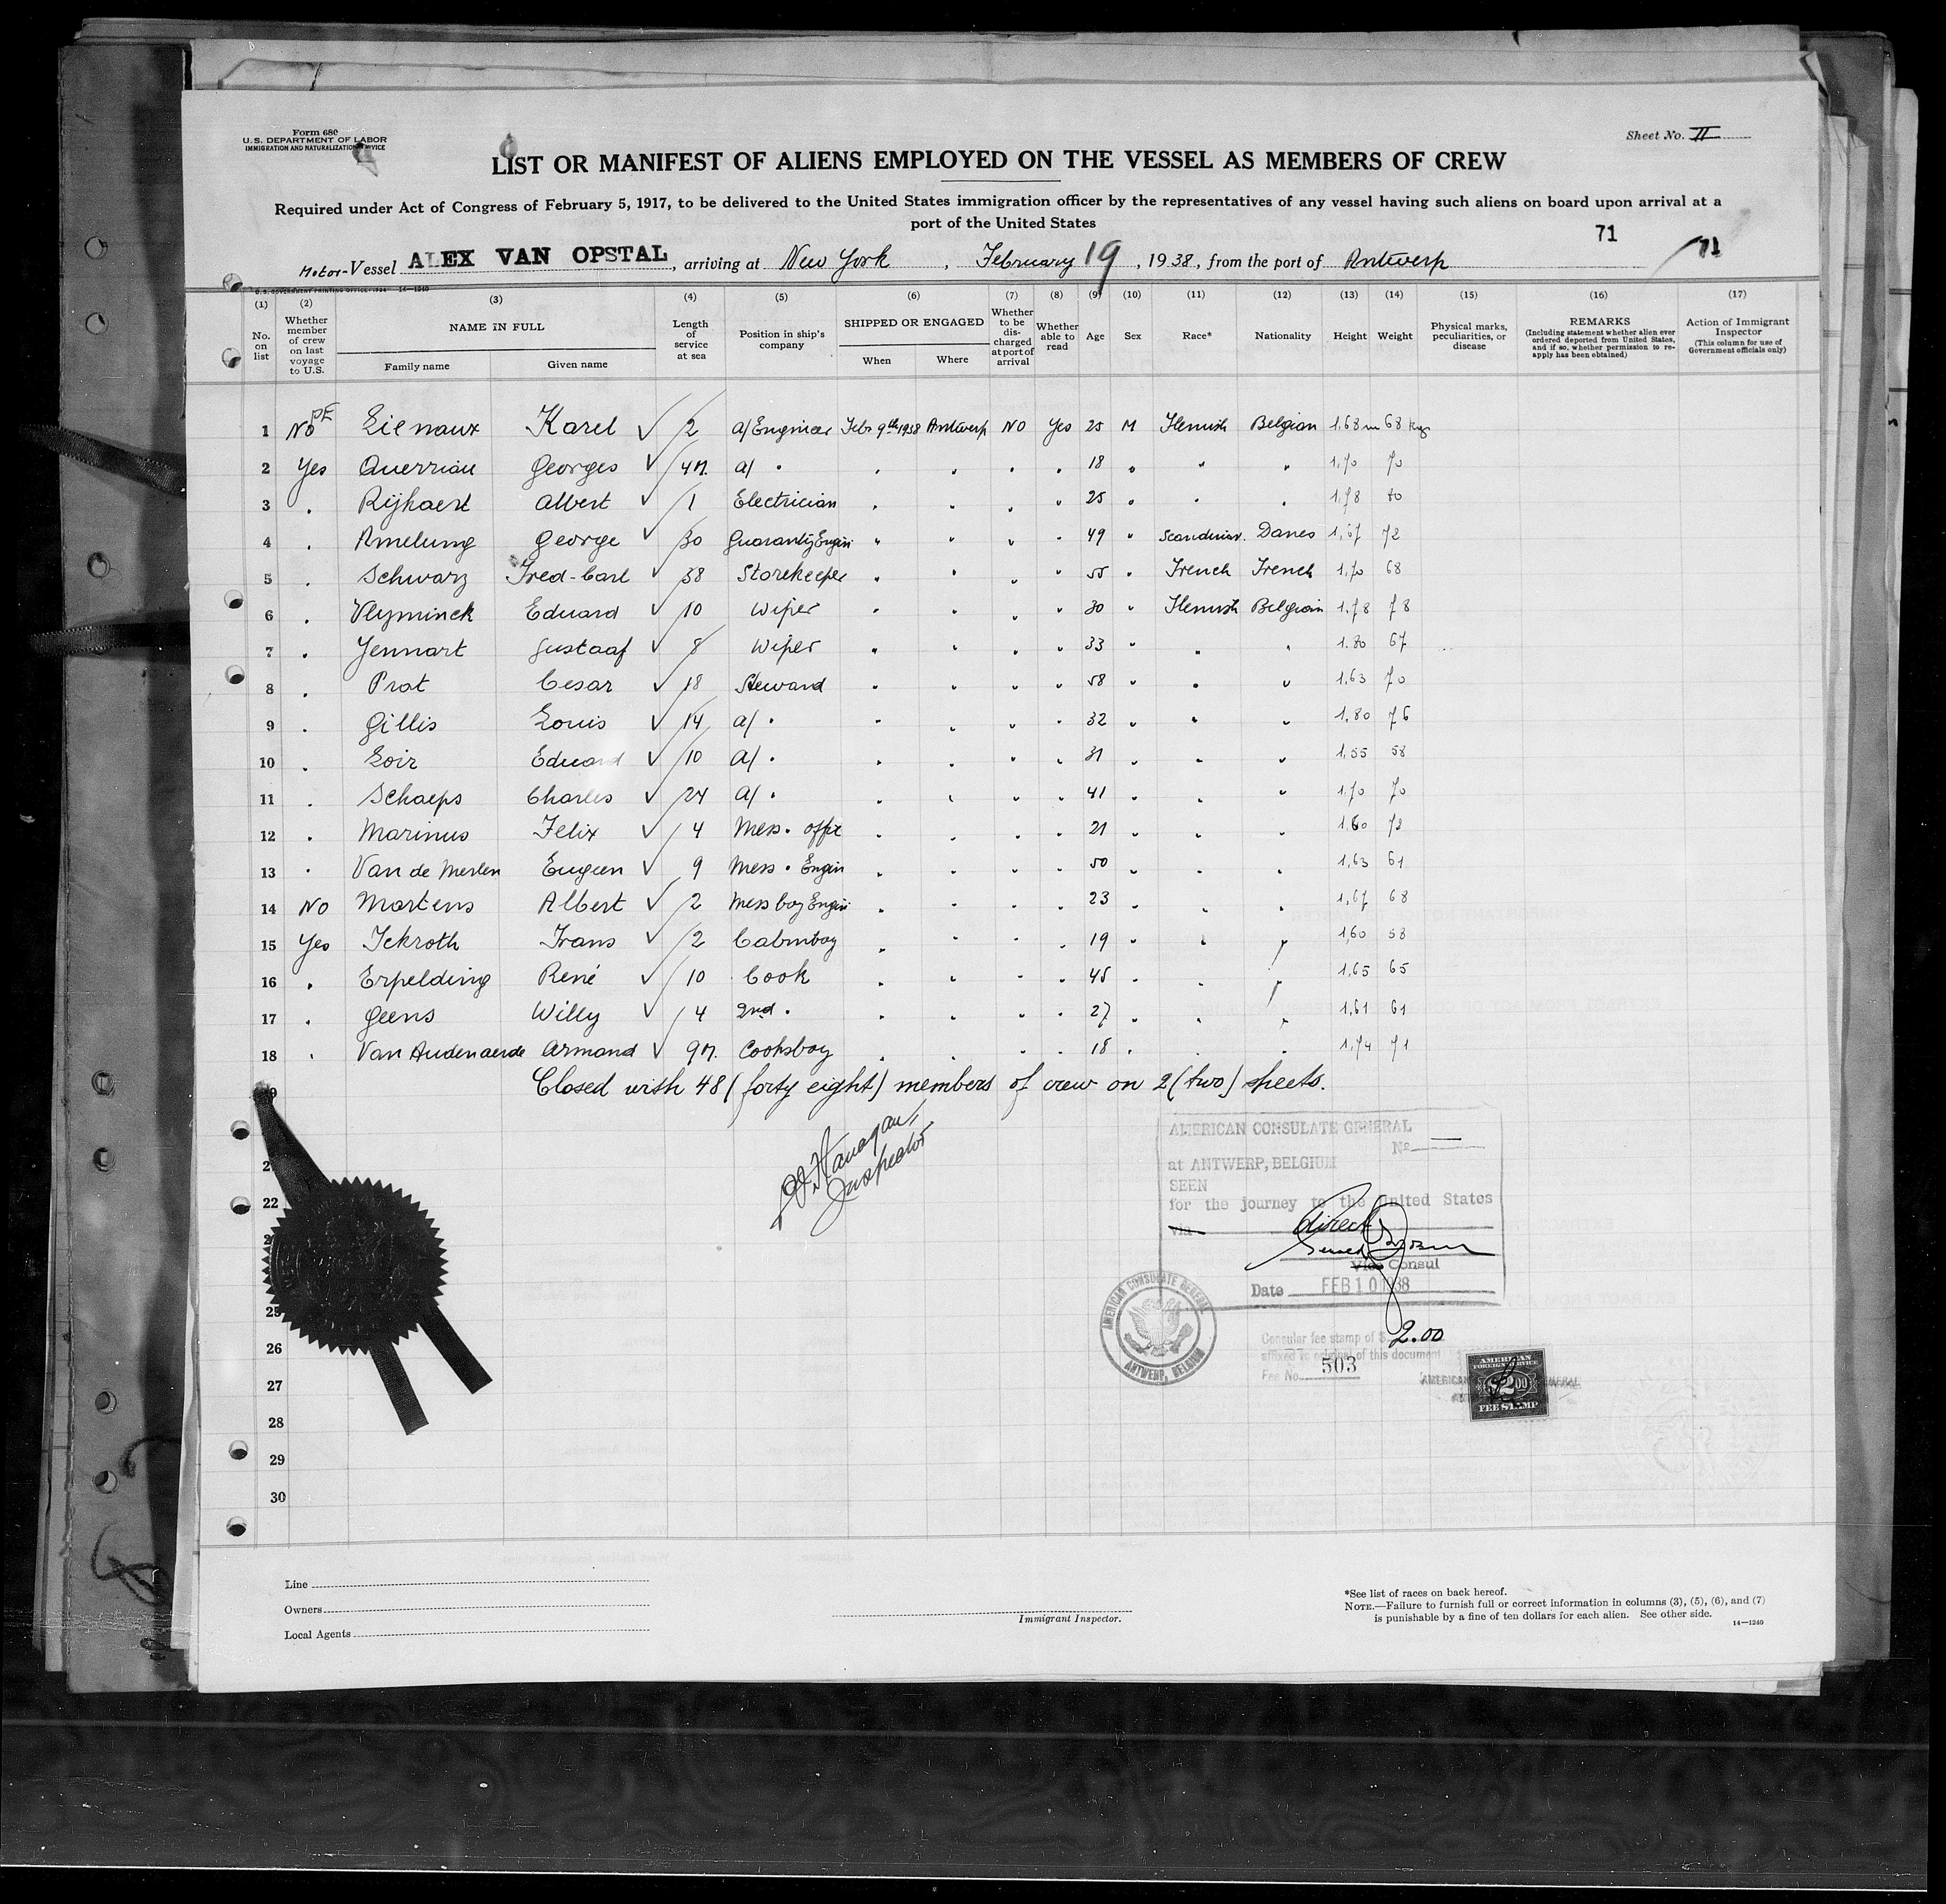 Form 680
U.S. DEPARTMENT OF LABOR
IMMIGRATION AND NATURALIZATION SERVICE
Sheet No. II
LIST OR MANIFEST OF ALIENS EMPLOYED ON THE VESSEL AS MEMBERS OF CREW
Required under Act of Congress of February 5, 1917, to be delivered to the United States immigration officer by the representatives of any vessel having such aliens on board upon arrival at a
port of the United States
71 71
Motor-Vessel ALEX VAN OPSTAL, arriving at New York, February 19, 1938, from the port of Antwerp
U.S. GOVERNMENT PRINTING OFFICE 14-1240
(1) (2) (3) (4) (5) (6) (7) (8) (9) (10) (11) (12) (13) (14) (15) (16) (17)
No. on list Whether member of crew on last voyage to U.S. NAME IN FULL Family name Given name Length of service at sea Position in ship's company SHIPPED OR ENGAGED When Where Whether to be discharged at port of arrival Whether able to read Age Sex Race* Nationality Height Weight Physical marks, peculiarities, or disease REMARKS (Including statement whether alien ever ordered deported from United States, and if so, whether permission to reapply has been obtained) Action of Immigrant Inspector (This column for use of Government officials only)
1 No Lienaux Karel 2 a/Engineer Febr 9th 1938 Antwerp NO Yes 25 M Flemish Belgian 1,68 m 68 kgs
2 Yes Querriau Georges 4M. a/ " 18 1,70 70
3 " Rijkaert Albert 1 Electrician 25 1,78
4 " Amelung George 30 Guaranty Engin 49 Scandinav. Danes 1,67 72
5 " Schwarz Fred-Carl 38 Storekeeper 55 French French 1,70 68
6 " Vlyminck Eduard 10 Wiper 30 Flemish Belgian 1,78 78
7 " Jennart Gustaaf 8 Wiper 33 1.80 67
8 " Prat Cesar 18 Steward 58 1,63 70
9 " Gillis Louis 14 a/ " 32 1,80 76
10 " Loir Eduard 10 a/ " 31 1,55 58
11 " Schaeps Charles 24 a/ " 41 1,70 70
12 " Marinus Felix 4 Mess. offic 21 1,60 72
13 " Van de Merlen Eugeen 9 Mess. Engin 50 1,63 61
14 NO Martens Albert 2 Messboy Engin 23 1,67 68
15 Yes Ickroth Frans 2 Cabinboy 19 1,60 58
16 " Erpelding René 10 Cook 45 1,65 65
17 " Geens Willy 4 2nd " 27 1,61 61
18 " Van Audenaerde Armand 9M. Cooksboy 18 1,74 71
Closed with 48 (forty eight) members of crew on 2 (two) sheets.
Inspector
AMERICAN CONSULATE GENERAL
No
at ANTWERP, BELGIUM
SEEN
for the journey to the United States
via direct
Vice Consul
Date FEB 10 1938
AMERICAN CONSULATE GENERAL ANTWERP, BELGIUM
Consular fee stamp of $ 2.00
affixed to original of this document
Fee No. 503
AMERICAN FOREIGN SERVICE $2.00 FEE STAMP
22
25
26
27
28
29
30
Line
Owners
Local Agents
Immigrant Inspector.
*See list of races on back hereof.
NOTE.—Failure to furnish full or correct information in columns (3), (5), (6), and (7)
is punishable by a fine of ten dollars for each alien. See other side.
14—1240